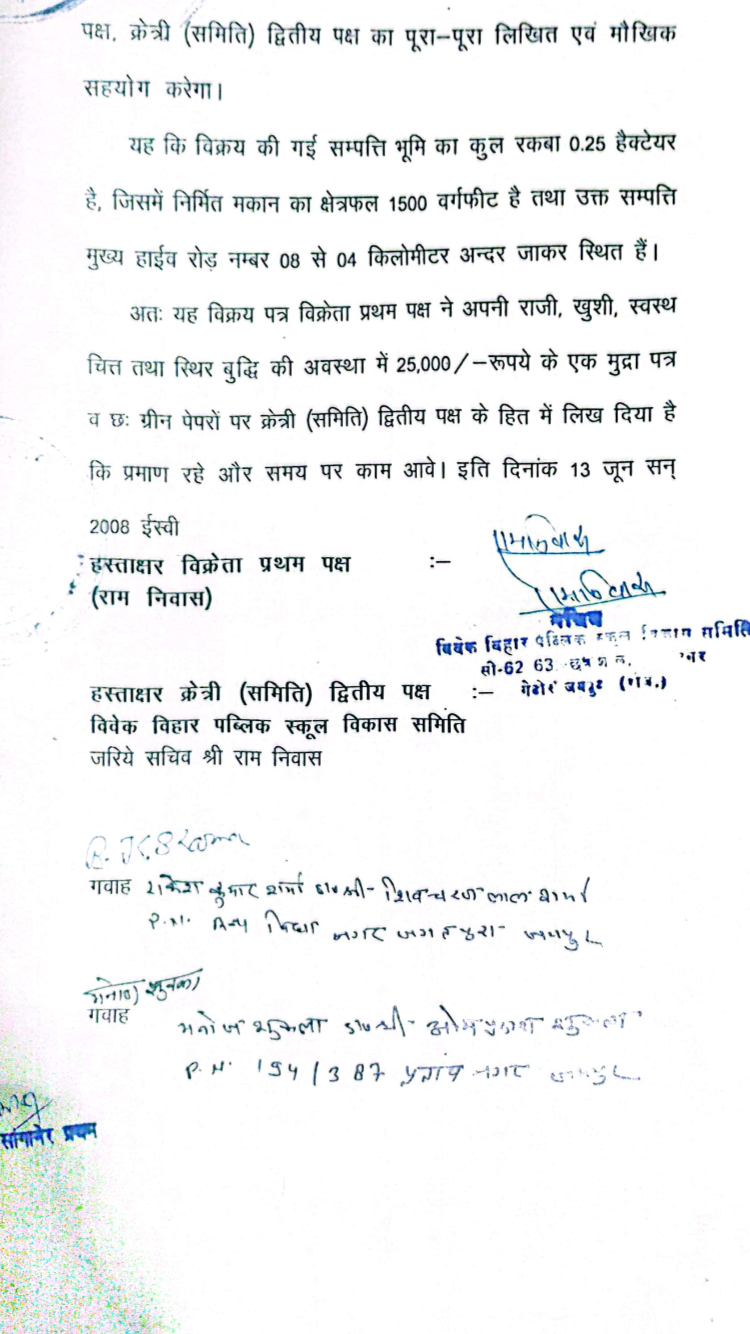 पक्ष, क्रेत्री (समिति) द्वितीय पक्ष का पूरा-पूरा लिखित एवं मौखिक
सहयोग करेगा।
यह कि विक्रय की गई सम्पत्ति भूमि का कुल रकबा 0.25 हैक्टेयर
है, जिसमें निर्मित मकान का क्षेत्रफल 1500 वर्गफीट है तथा उक्त सम्पत्ति
मुख्य हाईव रोड़ नम्बर 08 से 04 किलोमीटर अन्दर जाकर स्थित हैं।
अतः यह विक्रय पत्र विक्रेता प्रथम पक्ष ने अपनी राजी, खुशी, स्वस्थ
चित्त तथा स्थिर बुद्धि की अवस्था में 25,000/-रूपये के एक मुद्रा पत्र
व छः ग्रीन पेपरों पर क्रेत्री (समिति) द्वितीय पक्ष के हित में लिख दिया है
कि प्रमाण रहे और समय पर काम आवे। इति दिनांक 13 जून सन्
2008 ईस्वी
हस्ताक्षर विक्रेता प्रथम पक्ष :-
(राम निवास)
सचिव
विवेक विहार पब्लिक स्कूल विकास समिति
सी-62 63
हस्ताक्षर क्रेत्री (समिति) द्वितीय पक्ष :-
जयपुर (राज.)
विवेक विहार पब्लिक स्कूल विकास समिति
जरिये सचिव श्री राम निवास
R. K. Sharma
गवाह राकेश कुमार शर्मा S/o श्री शिवचरण लाल शर्मा
P.N. नगर जगतपुरा जयपुर
गवाह
मनोज शुक्ला S/o श्री ओमप्रकाश शुक्ला
P.N. 194/387 प्रताप नगर जयपुर
सांगानेर प्रथम